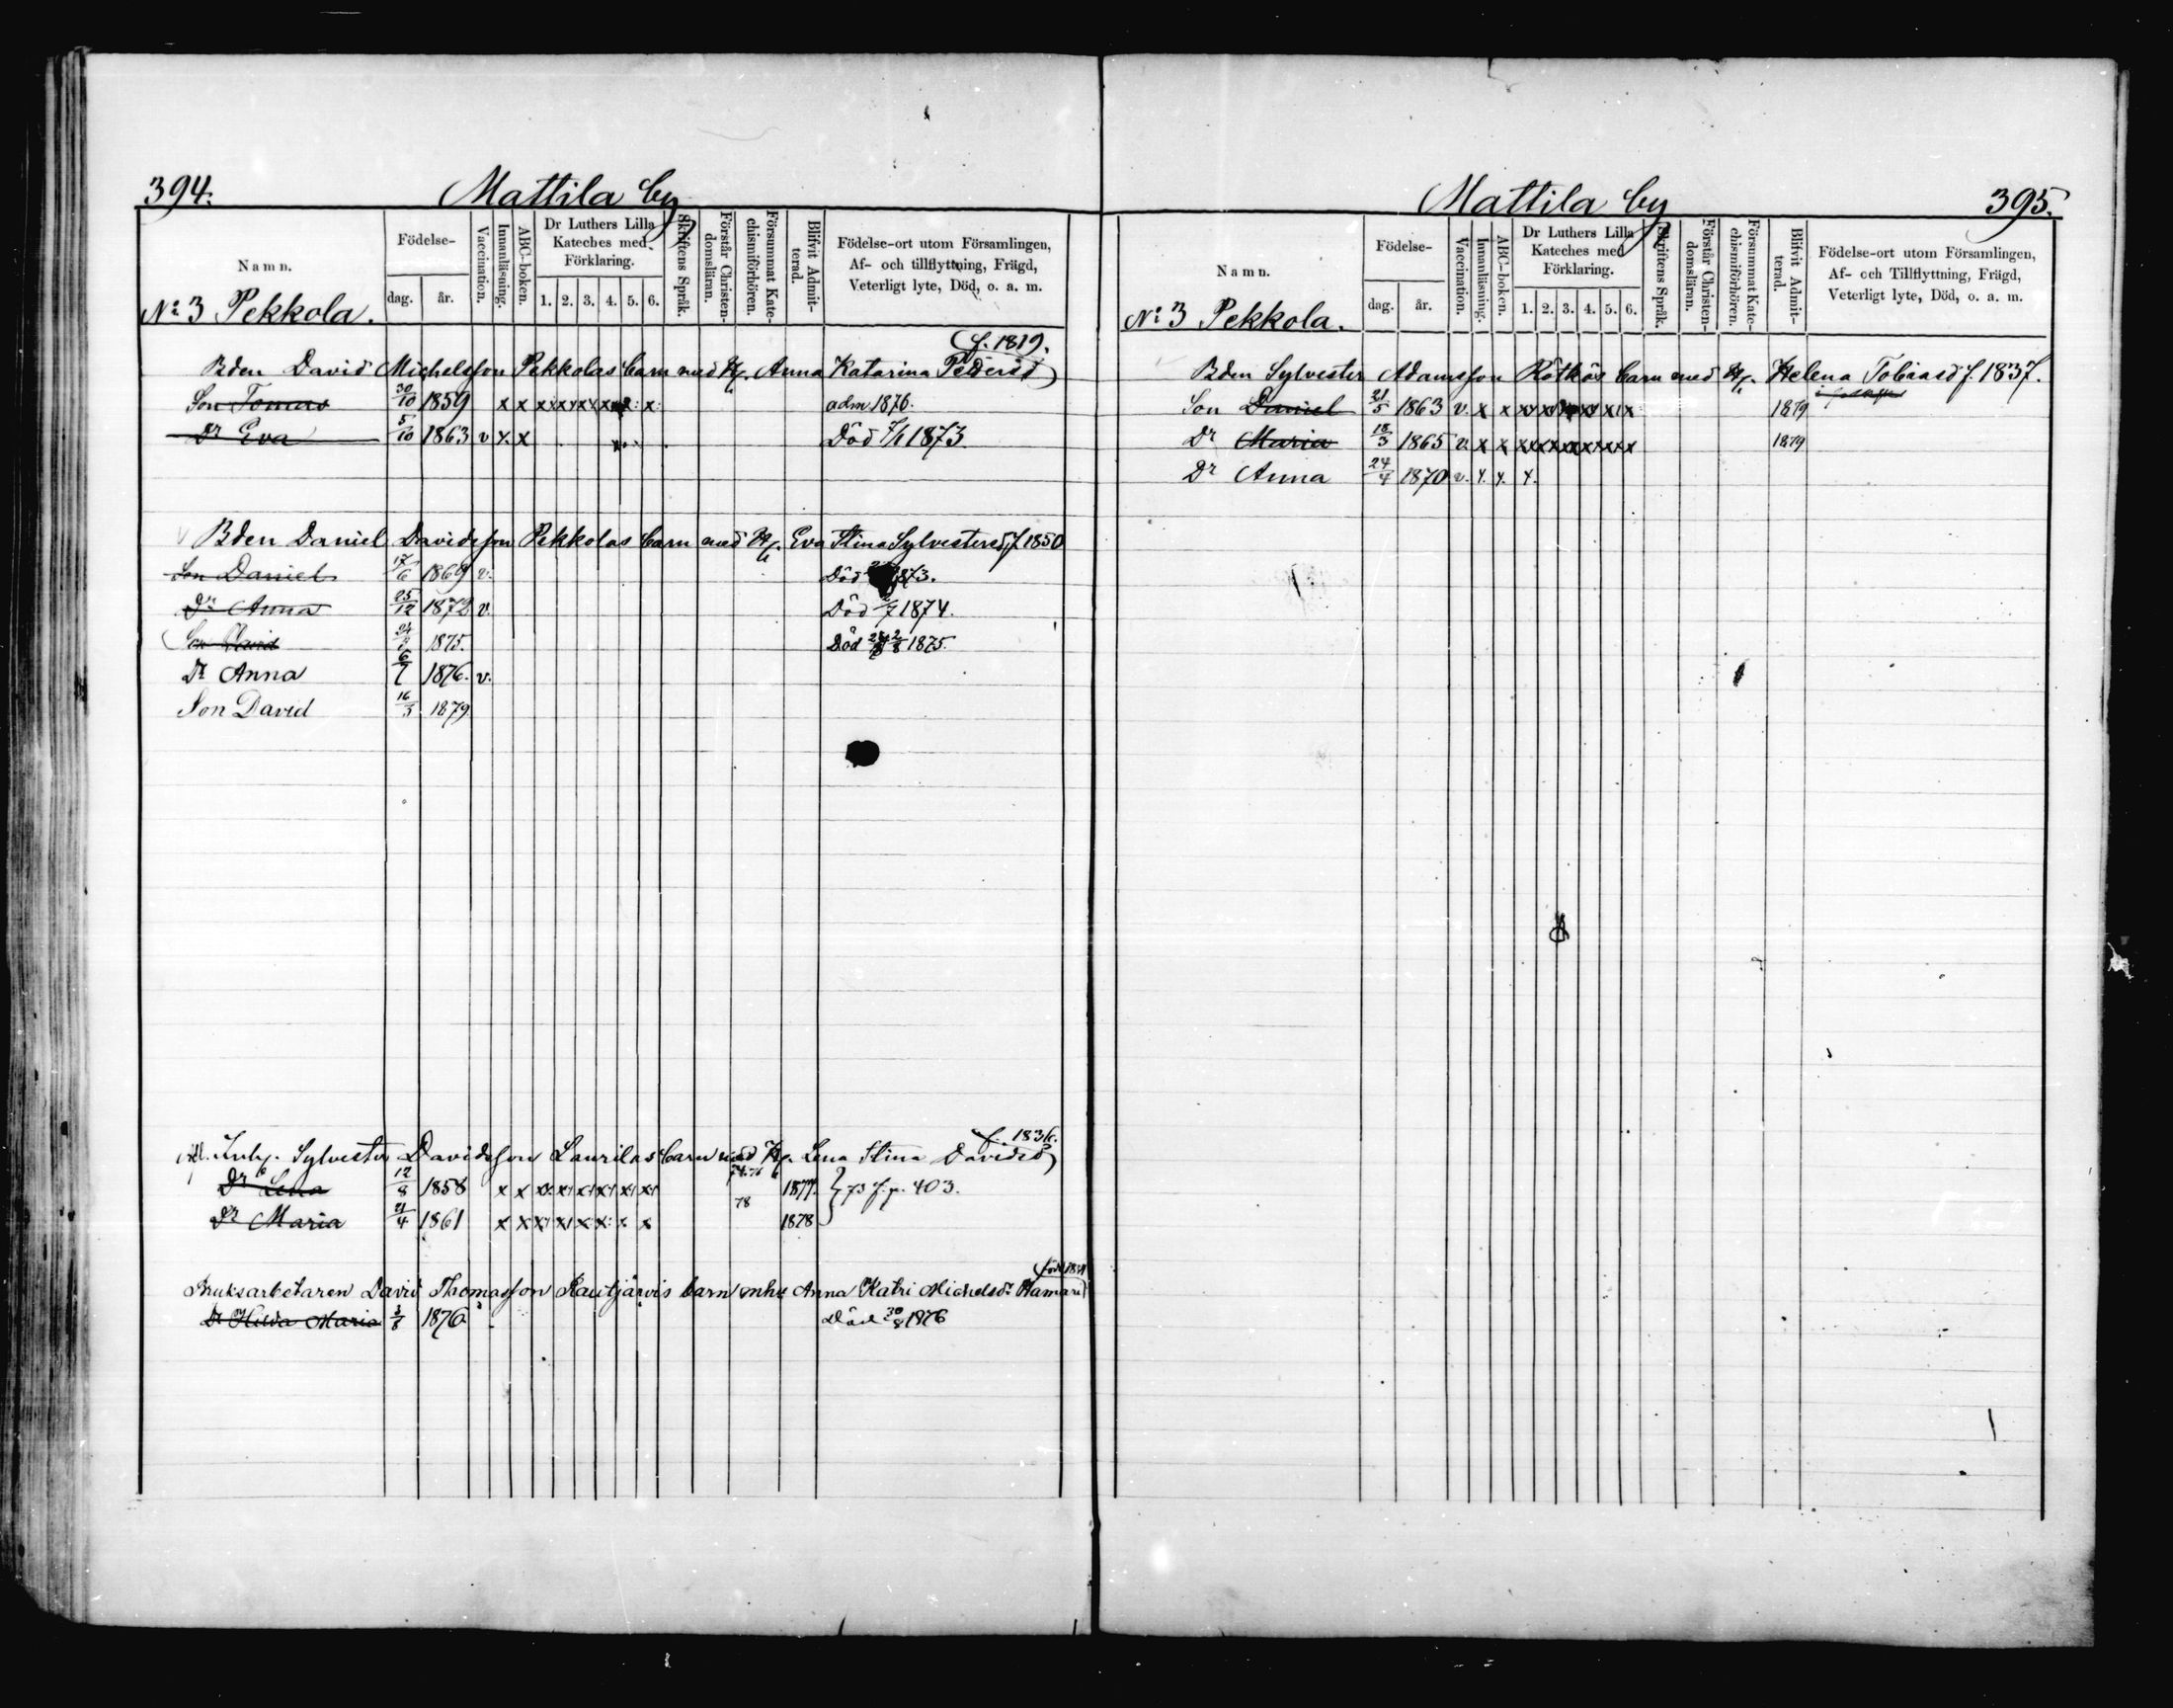 394.
Mattila by
Namn.
Födelse-
dag.
år.
Vaccination.
Innanläsning.
ABC-boken.
Dr Luthers Lilla
Kateches med
Förklaring.
1. 2. 3. 4. 5. 6.
Skriftens Språk.
Förstår Christen-
domsläran.
Försummat Kate-
chismiförhören.
Blifvit Admit-
terad.
Födelse-ort utom Församlingen,
Af- och tillflyttning, Frägd,
Veterligt lyte, Död, o. a. m.
No 3 Pekkola.
f. 1819.
Bden David Michelsson Pekkolas barn med H. Anna Katarina Pedersd
Son Tomas 30/10 1859 x x adm. 1876.
Dr Eva 5/10 1863 v x. x Död 1873.
Bden Daniel Davidsson Pekkolas barn med H. Eva Stina Sylvestersd f 1850
Son Daniel 17/6 1869 v. Död 1873.
Dr Anna 25/12 1872 v. Död 1874.
Son David 1875. Död 1875.
Dr Anna 6/7 1876. v.
Son David 16/3 1879.
f. 1836.
Inh. Sylvester Davidsson Laurilas barn med H. Lena Stina Davidsd
Dr Lena 12/8 1858 x x 1877. 73 f. p. 403.
78
Dr Maria 21/4 1861 x x 1878
Bruksarbetaren David Thomasson Rautjärvis barn m hu Anna Katri Michelsdr Hamari
Dr Hilda Maria 3/8 1876 Död 30/8 1876
Mattila by
395.
Namn.
Födelse-
dag.
år.
Vaccination.
Innanläsning.
ABC-boken.
Dr Luthers Lilla
Kateches med
Förklaring.
1. 2. 3. 4. 5. 6.
Skriftens Språk.
Förstår Christen-
domsläran.
Försummat Kate-
chismiförhören.
Blifvit Admit-
terad.
Födelse-ort utom Församlingen,
Af- och Tillflyttning, Frägd,
Veterligt lyte, Död, o. a. m.
No 3 Pekkola.
Bden Sylvester Adamsson Rötkös barn med H. Helena Tobiasd f. 1837.
Son Daniel 21/5 1863 v. x x 1879
Dr Maria 18/3 1865 v. x x 1879
Dr Anna 24/4 1870 v. x. x. x.